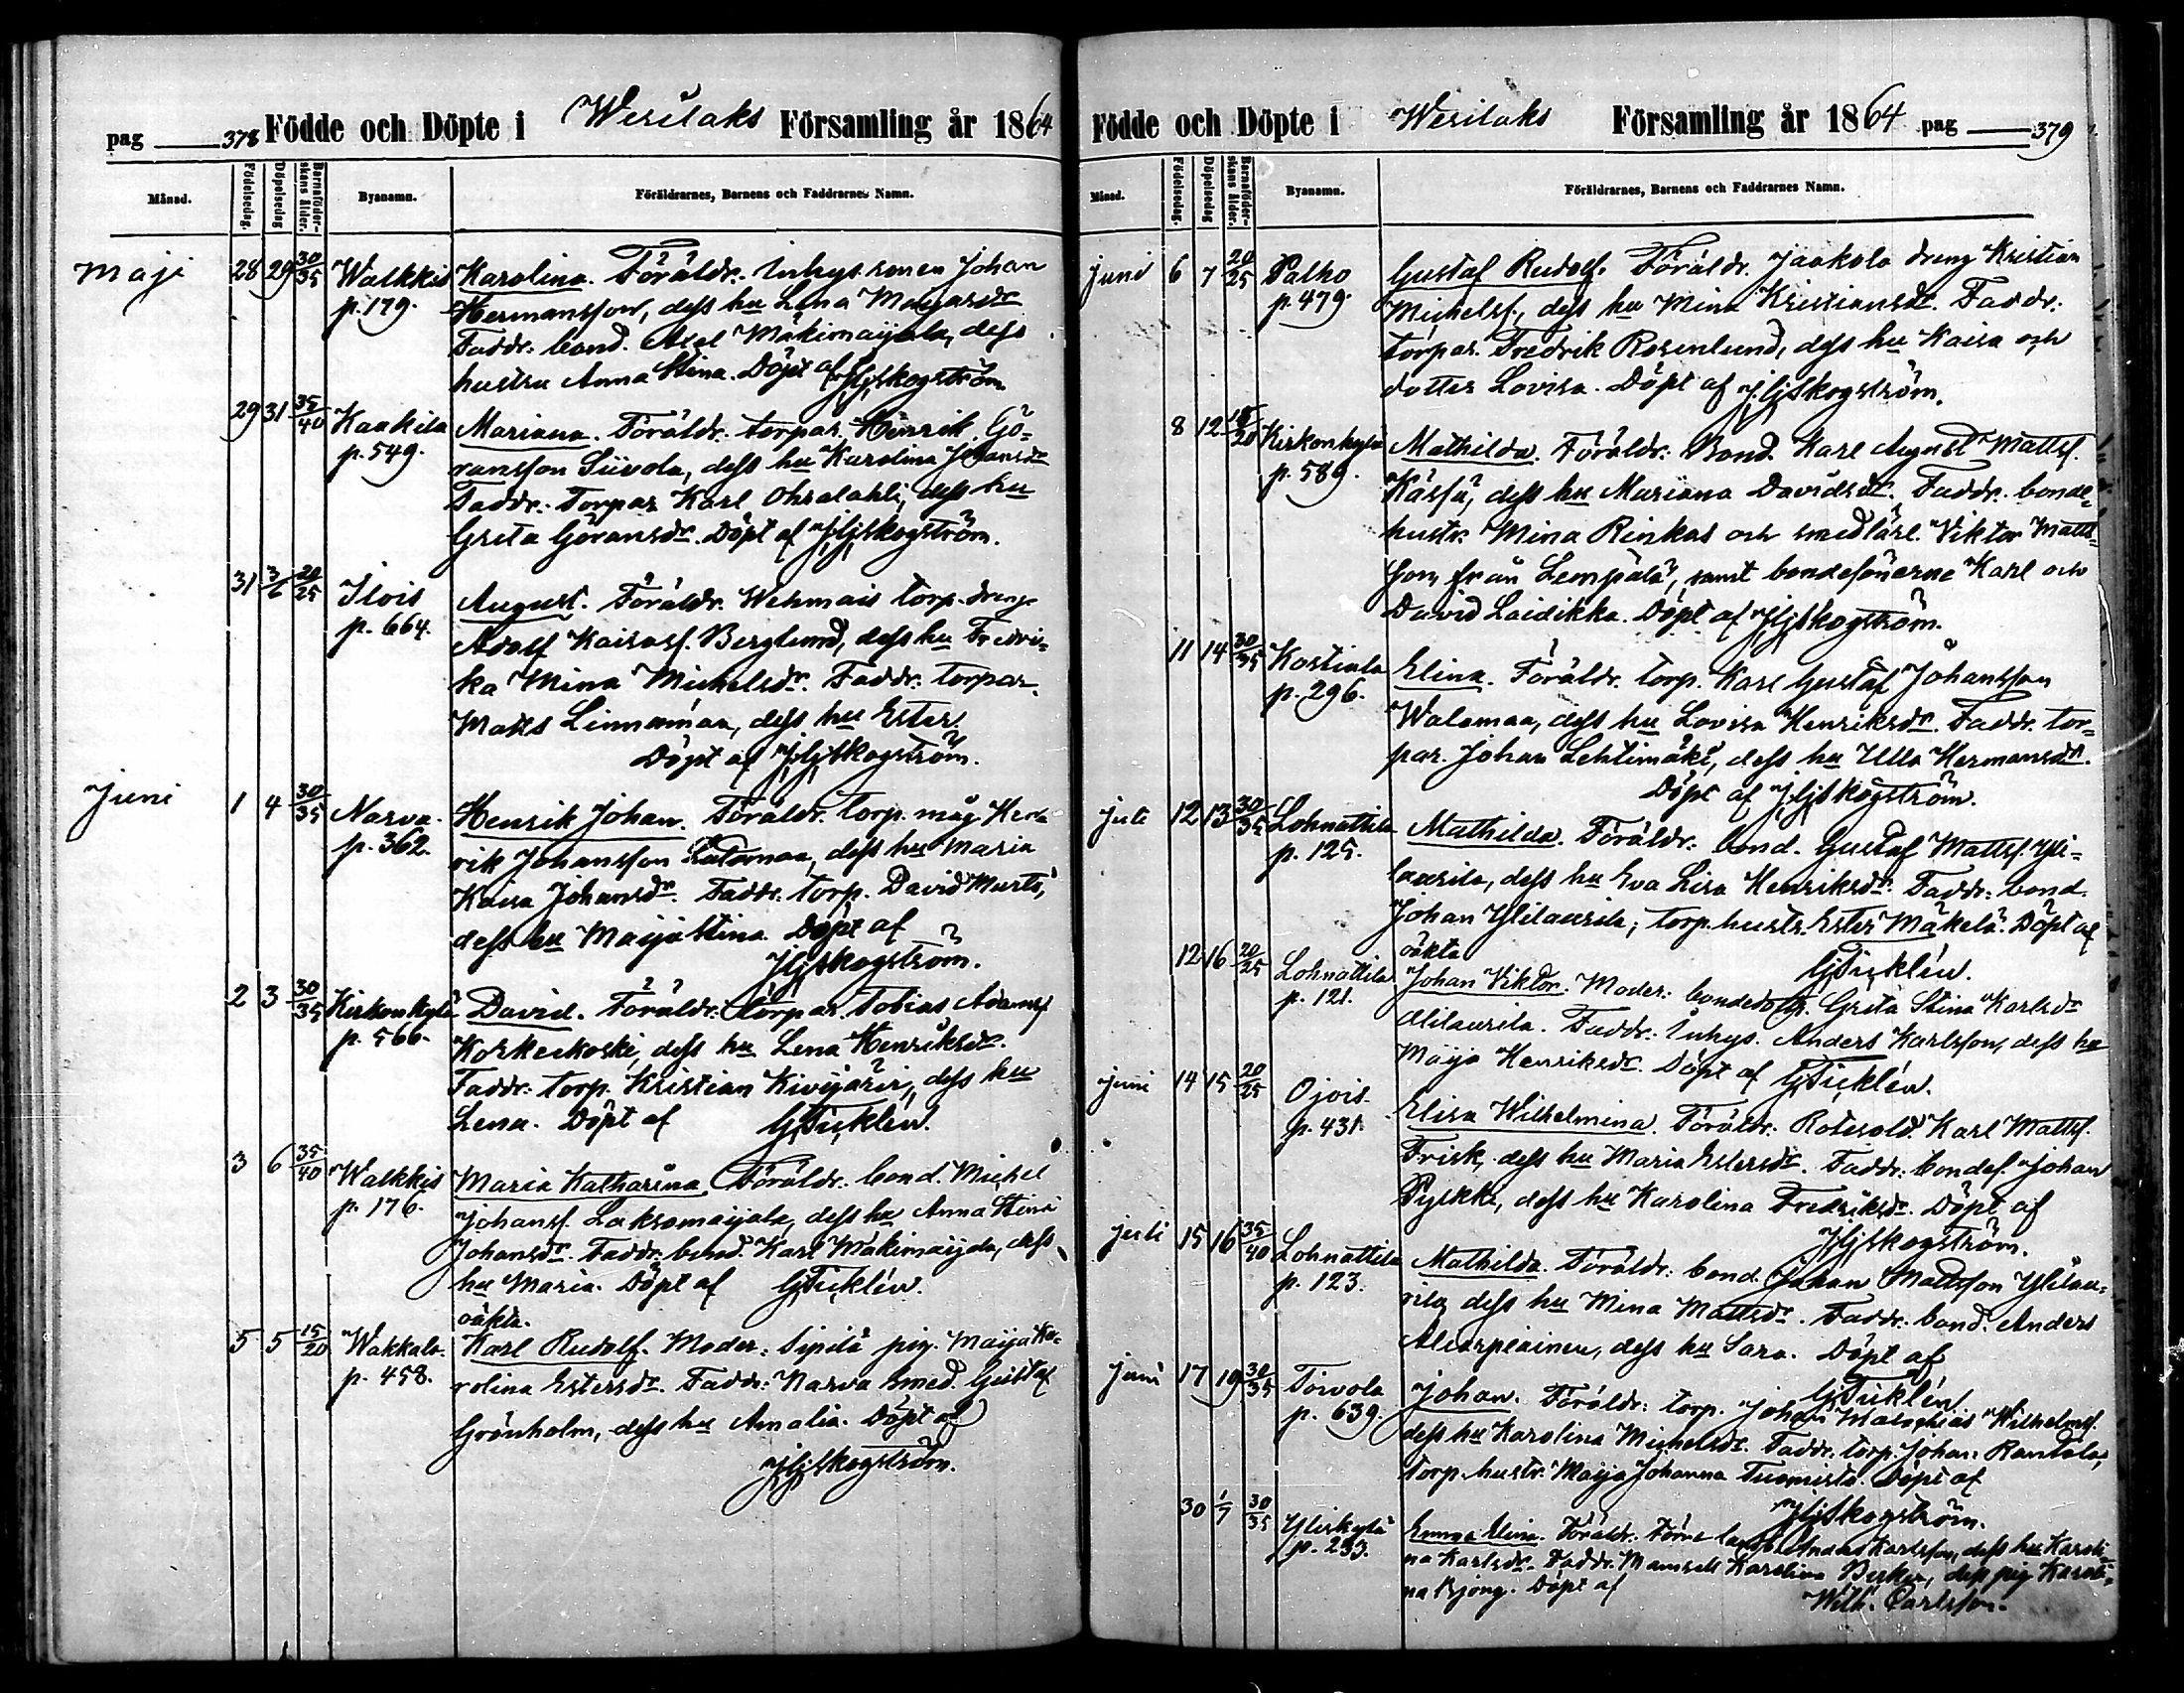 pag 378 Födde och Döpte i Wesilaks Församling år 1864
Månad. Födelsedag. Döpelsedag Barnaföderskans ålder. Byanamn. Föräldrarnes, Barnens och Faddrarnes Namn.
Maji 28 29 30/35 Walkkis Karolina. Föräldr. Inhys. sonen Johan
p. 179. Hermansson, dess hu Lena Magasdr
Faddr. bond. Axel Mäkimaijala, dess
hustru Anna Stina. Döpt af Skogström
29 31 35/40 Kaakila Mariana. Föräldr. torpar. Henrik Gö-
p. 549. ransson Siivola, dess hu Karolina Johansdr
Faddr. Torpar Karl Ohralahti, dess hu
Greta Göransdr. Döpt af Skogström.
31 3/6 20/25 Ilois August. Föräldr. Wehmais torp. dreng
p. 664. Adolf Kaisasf. Berglund, dess hu Fredri-
ka Mina Michelsdr. Faddr. torpar.
Matts Linnanmaa, dess hu Ester.
Döpt af Skogström.
Juni 1 4 30/35 Narva. Henrik Johan. Föräldr. torp. måg Hen-
p. 362. rik Johansson Latomaa, dess hu Maria
Kaisa Johansdr. Faddr. torp. David Murto,
dess hu Maija Stina Döpt af
Skogström.
2 3 30/35 Kirkonkylä David. Föräldr. torpar. Tobias Adamsf
p. 566. Koskeskoski, dess hu Lena Henriksdr.
Faddr. torp. Kristian Kivijärvi, dess hu
Lena. Döpt af G Ticklén.
3 6 35/40 Walkkis Maria Katharina. Föräldr. bond. Michel
p. 176. Johansf. Laksomaijala, dess hu Anna Stina
Johansdr. Faddr. bond. Karl Mäkimaijala, dess
hu Maria. Döpt af G Ticklén.
oäkta.
5 5 15/20 Wakkala. Karl Rudolf. Moder: Sipilä pig. Maija Ka-
p. 458. rolina Estersdr. Faddr. Narva smed. Gustaf
Grönholm, dess hu Amalia. Döpt af
Skogström.
Födde och Döpte i Wesilaks Församling år 1864 pag 379
Månad. Födelsedag. Döpelsedag Barnaföderskans ålder. Byanamn. Föräldrarnes, Barnens och Faddrarnes Namn.
Juni 6 7 20/25 Palho Gustaf Rudolf. Föräldr. Jaakola dreng Kristian
p. 479. Michelsf., dess hu Mina Kristiansdr. Faddr.
torpar. Fredrik Rosenlund, dess hu Kaisa och
dotter Lovisa. Döpt af Skogström.
8 12 15/20 Kirkonkylä Mathilda. Föräldr. Bond. Karl August Mattsf.
p. 589. Kässä, dess hu Mariana Davidsdr. Faddr. bonde-
hustr. Mina Rinkas och smedlärl. Viktor Matts-
son från Lempälä, samt bondesönerne Karl och
David Laidikka. Döpt af Skogström.
11 14 30/35 Kostiala Elina. Föräldr. torp. Karl Gustaf Johansson
p. 296. Walamaa, dess hu Lovisa Henriksdr. Faddr. tor-
par. Johan Lehtimäki, dess hu Ulla Hermansdr.
Döpt af Skogström.
Juli 12 13 30/35 Lohnattila Mathilda. Föräldr. bond. Gustaf Mattsf. Yli-
p. 125. laurila, dess hu Eva Lisa Henriksdr. Faddr. bond.
Johan Ylilaurila; torp. hustr. Ester Mäkelä. Döpt af
oäkta G Ticklén.
12 16 20/25 Lohnattila Johan Viktor. Moder: bondedottr. Greta Stina Karlsdr
p. 121. Alilaurila. Faddr. Inhys. Anders Karlsson, dess hu
Maija Henriksdr. Döpt af G Ticklén.
Juni 14 15 20/25 Ojois Elisa Wilhelmina. Föräldr. Rotesold. Karl Mattsf.
p. 431. Frisk, dess hu Maria Estersdr. Faddr. bondef. Johan
Pyskki, dess hu Karolina Fredriksdr. Döpt af
Skogström.
Juli 15 16 35/40 Lohnattila Mathilda. Föräldr. bond. Johan Mattsson Ylilau-
p. 123. rila, dess hu Mina Mattsdr. Faddr. bond. Anders
dess hu Sara. Döpt af
G Ticklén
Juni 17 19 30/35 Toivola Johan. Föräldr. torp. Johan Malachias Wilhelmsf.
p. 639. dess hu Karolina Michelsdr. Faddr. torp. Johan Rantala,
torp. hustr. Maija Johanna Tuomisto. Döpt af
Skogström.
30 1/7 30/35 Yliskylä Emma Elina. Föräldr. Förre Anders Karlsson, dess hu Karoli-
p. 233. na Karlsdr. Faddr. Mamsell Karolina dess pig Karoli-
na Döpt af Wilh. Carlsson.